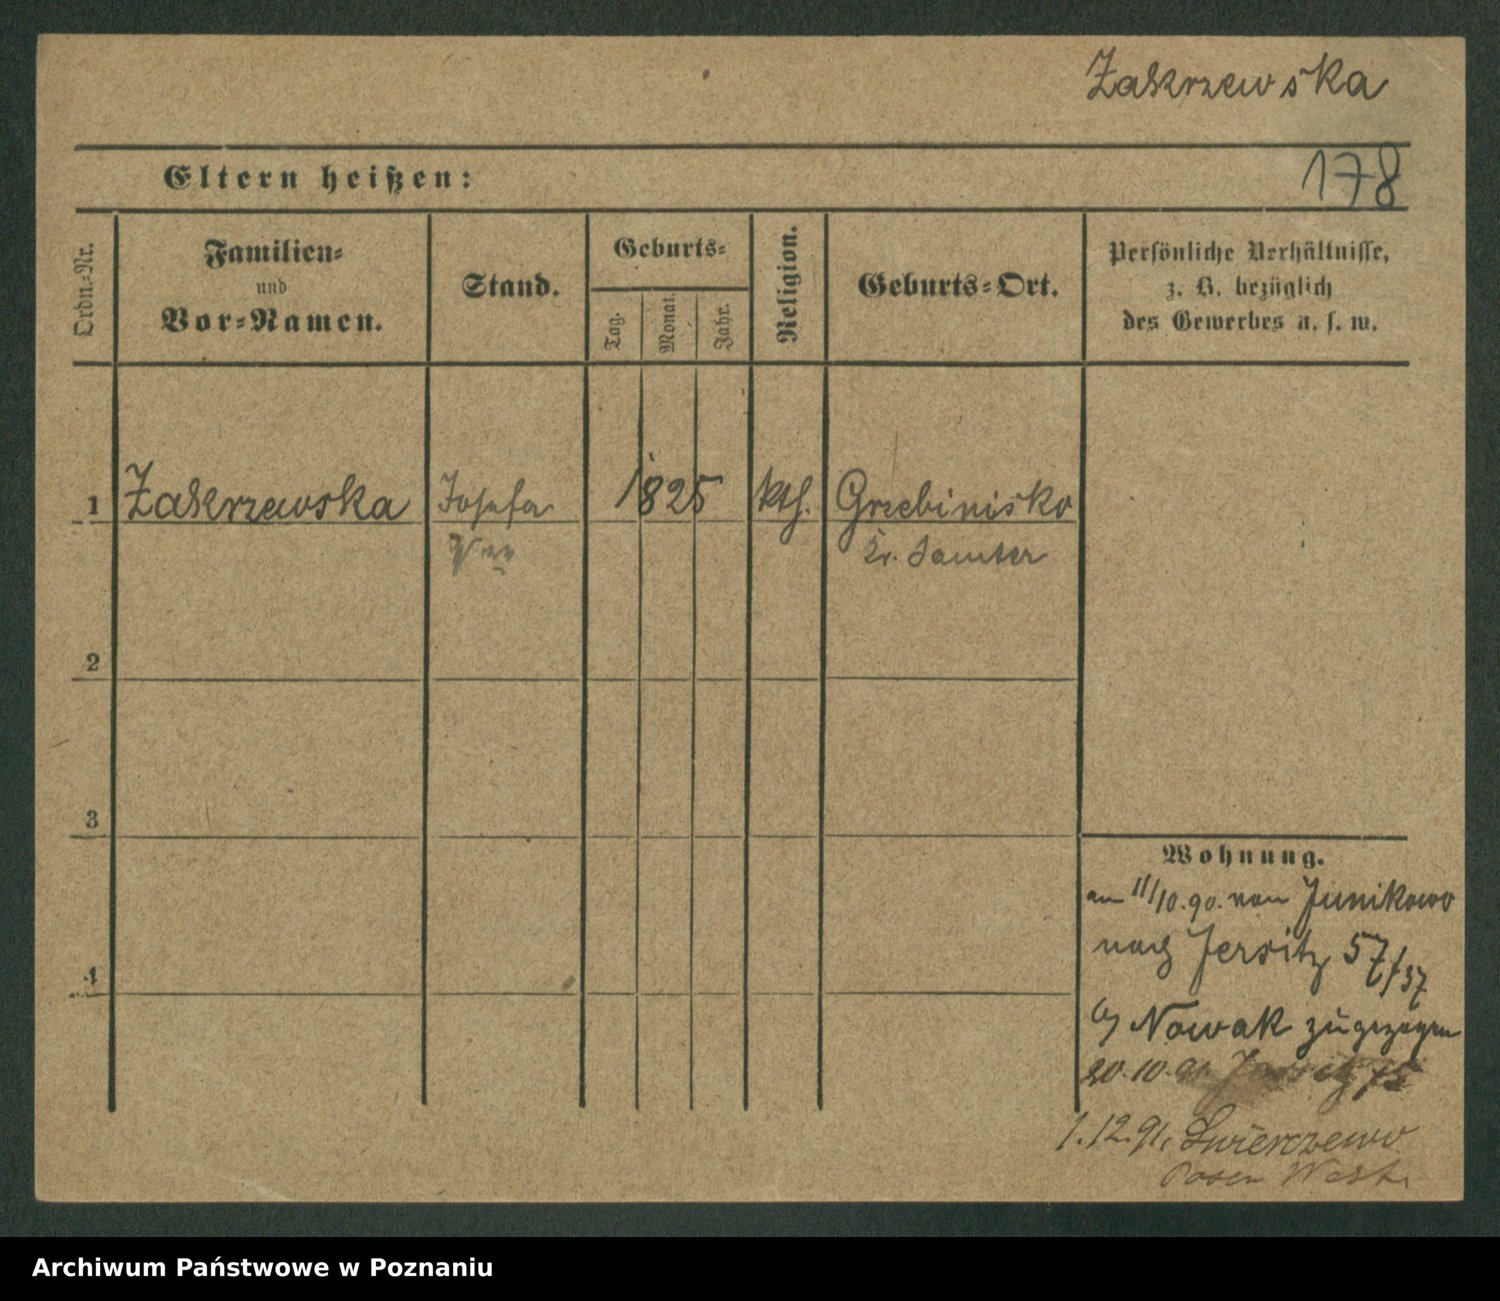 Zakrzewska
178
Eltern heißen:
Ordn.-Nr.
Familien-
und
Vor-Namen.
Stand.
Geburts-
Tag.
Monat.
Jahr.
Religion.
Geburts-Ort.
Persönliche Verhältnisse,
z. B. bezüglich
des Gewerbes u. s. w.
1 Zakrzewska Josefa 1825 kth. Grzebinisko
Kr. Samter
2
3
4
Wohnung.
am 11/10.90. von Junikowo
nach Jersitz 57/37
b/ Nowak zugezogen
20.10.91. Jersitz 75
1.12.91. Swierczewo
Posen West.
Archiwum Państwowe w Poznaniu